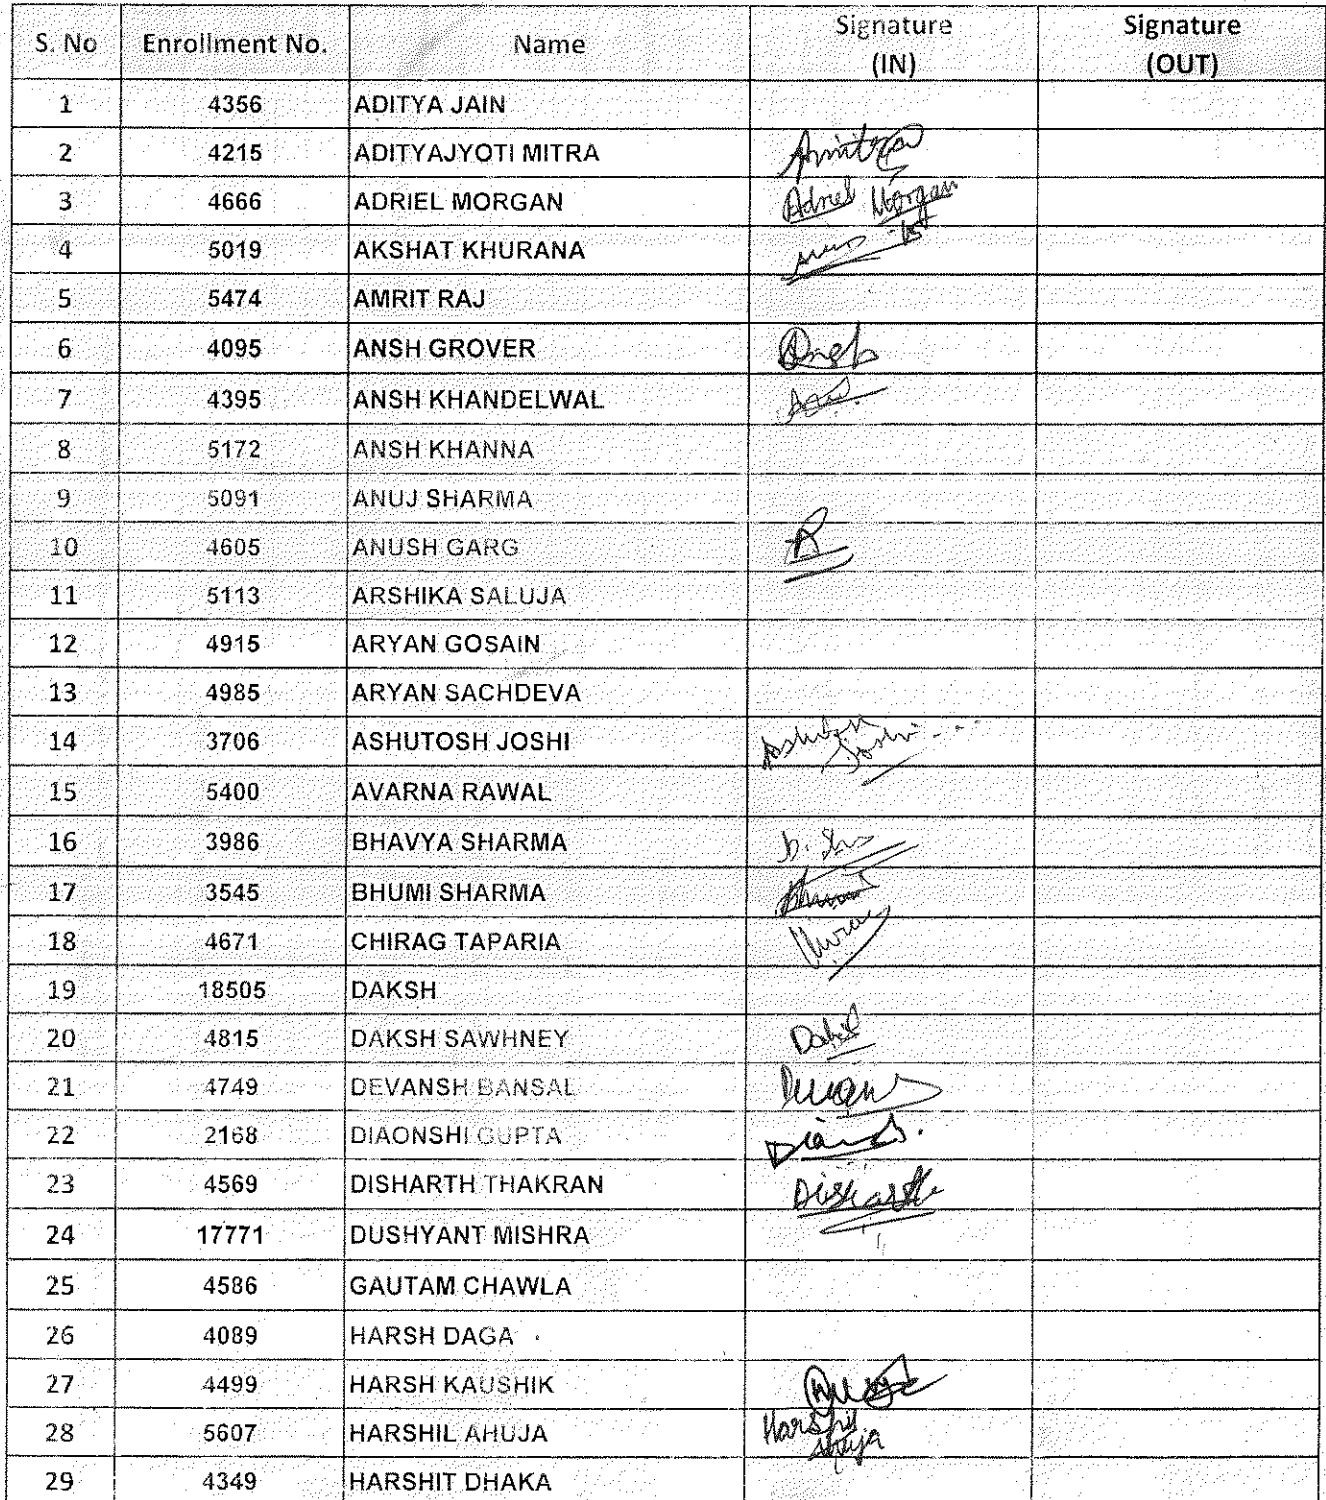 S. No Enrollment No. Name Signature (IN) Signature (OUT)
1 4356 ADITYA JAIN
2 4215 ADITYAJYOTI MITRA
3 4666 ADRIEL MORGAN Adriel Morgan
4 5019 AKSHAT KHURANA
5 5474 AMRIT RAJ
6 4095 ANSH GROVER Ansh
7 4395 ANSH KHANDELWAL
8 5172 ANSH KHANNA
9 5091 ANUJ SHARMA
10 4605 ANUSH GARG
11 5113 ARSHIKA SALUJA
12 4915 ARYAN GOSAIN
13 4985 ARYAN SACHDEVA
14 3706 ASHUTOSH JOSHI Joshi
15 5400 AVARNA RAWAL
16 3986 BHAVYA SHARMA
17 3545 BHUMI SHARMA
18 4671 CHIRAG TAPARIA
19 18505 DAKSH
20 4815 DAKSH SAWHNEY
21 4749 DEVANSH BANSAL
22 2168 DIAONSHI GUPTA
23 4569 DISHARTH THAKRAN Disharth
24 17771 DUSHYANT MISHRA
25 4586 GAUTAM CHAWLA
26 4089 HARSH DAGA
27 4499 HARSH KAUSHIK
28 5607 HARSHIL AHUJA Harshil Ahuja
29 4349 HARSHIT DHAKA